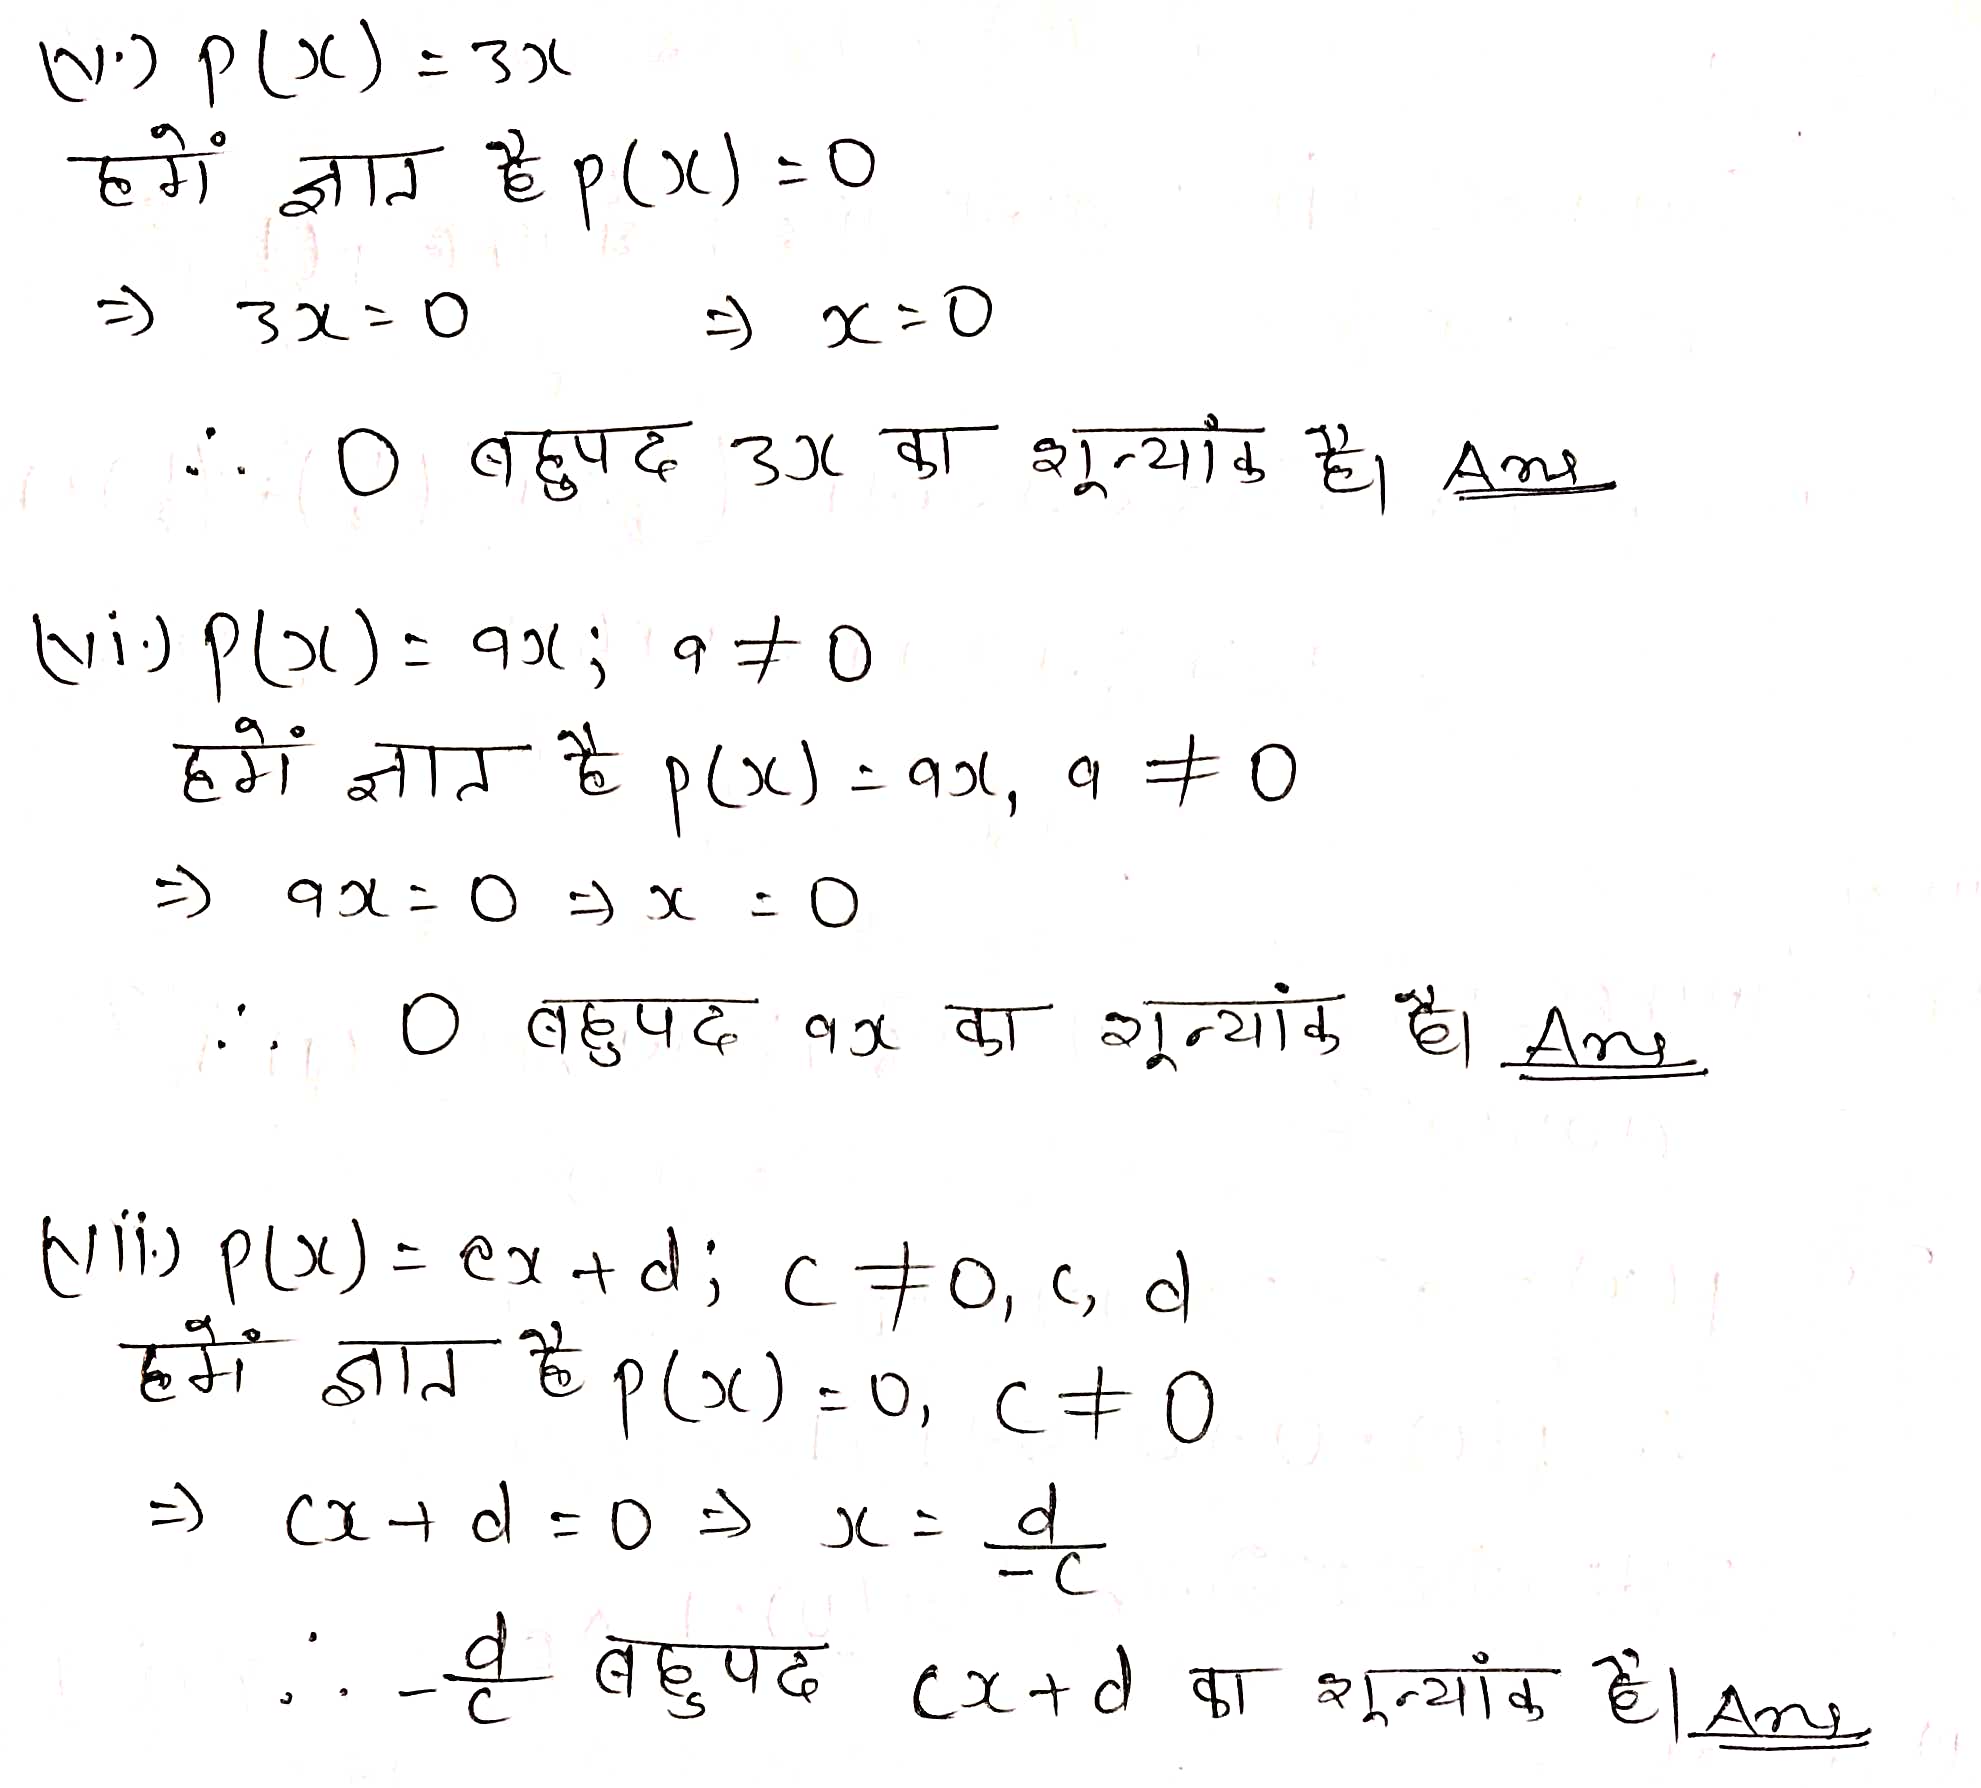 (v.) p(x) = 3x
हमें ज्ञात है p(x) = 0
⇒ 3x = 0 ⇒ x = 0
∴ 0 बहुपद 3x का शून्यांक है। Ans
(vi.) p(x) = ax; a ≠ 0
हमें ज्ञात है p(x) = ax, a ≠ 0
⇒ ax = 0 ⇒ x = 0
∴ 0 बहुपद ax का शून्यांक है। Ans
(vii.) p(x) = cx + d; c ≠ 0, c, d
हमें ज्ञात है p(x) = 0, c ≠ 0
⇒ cx + d = 0 ⇒ x = d/-c
∴ -d/c बहुपद cx + d का शून्यांक है। Ans